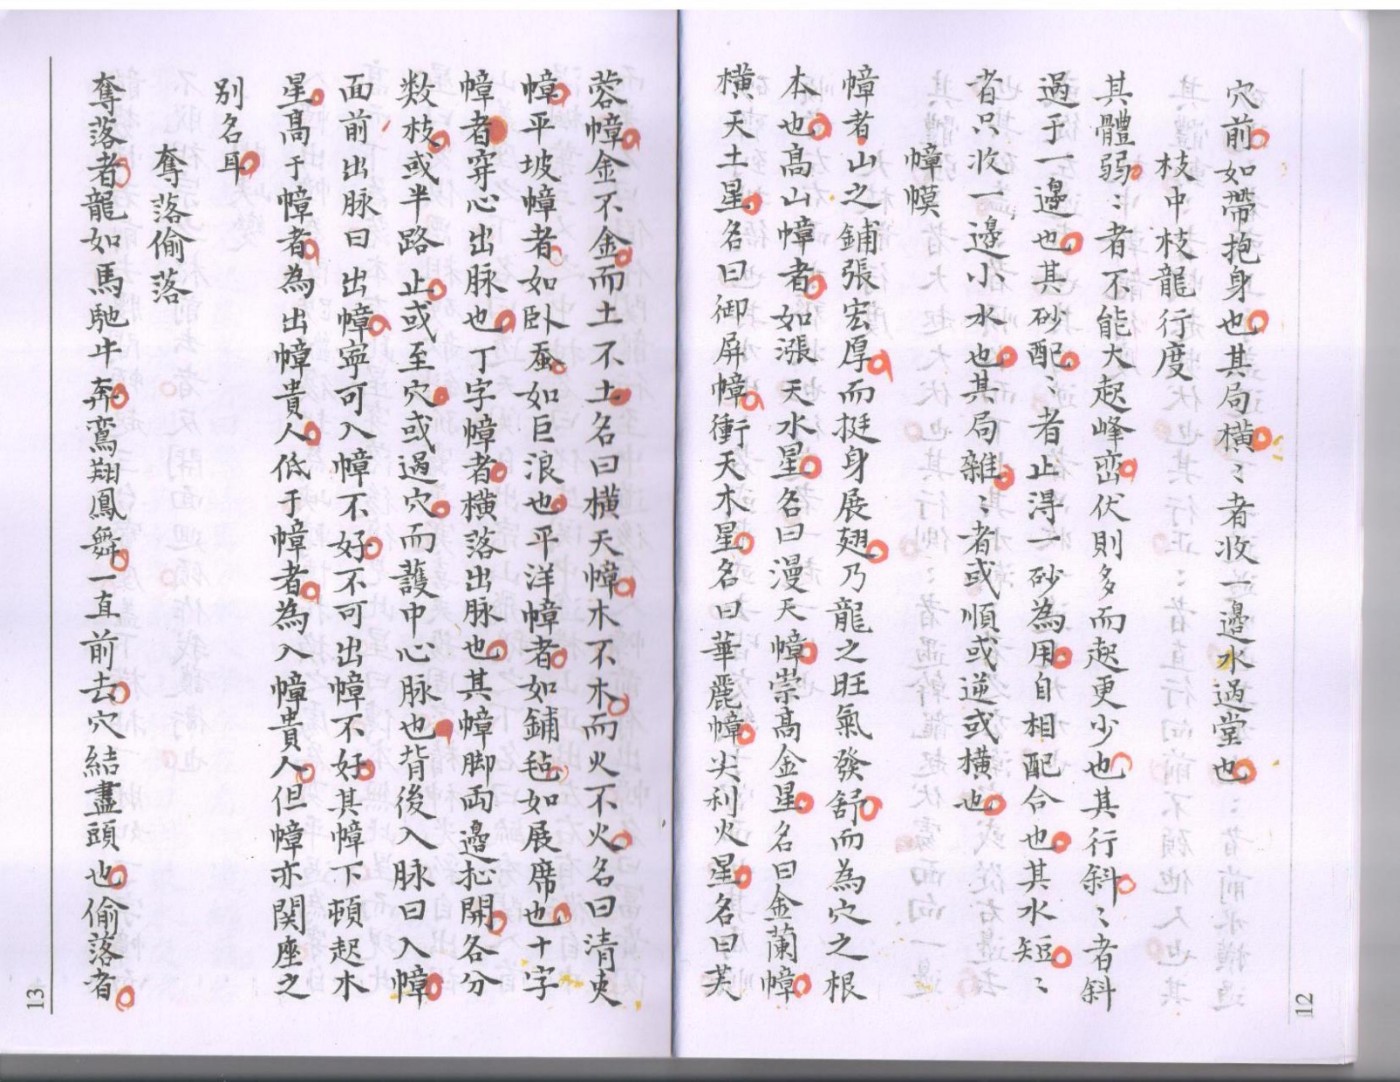 穴前如帶抱身也其局橫〻者收一邊水過堂也
枝中枝龍行度
其體弱〻者不能大起峰巒伏則多而起更少也其行斜〻者斜
過于一邊也其砂配〻者止淂一砂為用自相配合也其水短〻
者只收一邊小水也其局雜〻者或順或逆或橫也
幛幙
幛者山之鋪張宏厚而挺身展翅乃龍之旺氣發舒而為穴之根
本也高山幛者如漲天水星名曰漫天幛崇高金星名曰金蘭幛
橫天土星名曰御屏幛衝天木星名曰華麗幛尖利火星名曰芙
蓉幛金不金而土不土名曰橫天幛木不木而火不火名曰清史
幛平坡幛者如臥蚕如巨浪也平洋幛者如鋪毡如展席也十字
幛者穿心出脉也丁字幛者橫落出脉也其幛脚両邊扵開各分
数枝或半路止或至穴或過穴而護中心脉也背後入脉曰入幛
面前出脉曰出幛寧可入幛不好不可出幛不好其幛下頓起木
星高幛者為出幛貴人低于幛者為入幛貴人但幛亦関座之
別名耳
奪落偷落
奪落者龍如馬馳牛奔鸞翔鳳舞一直前去穴結盡頭也偷落者
12
13